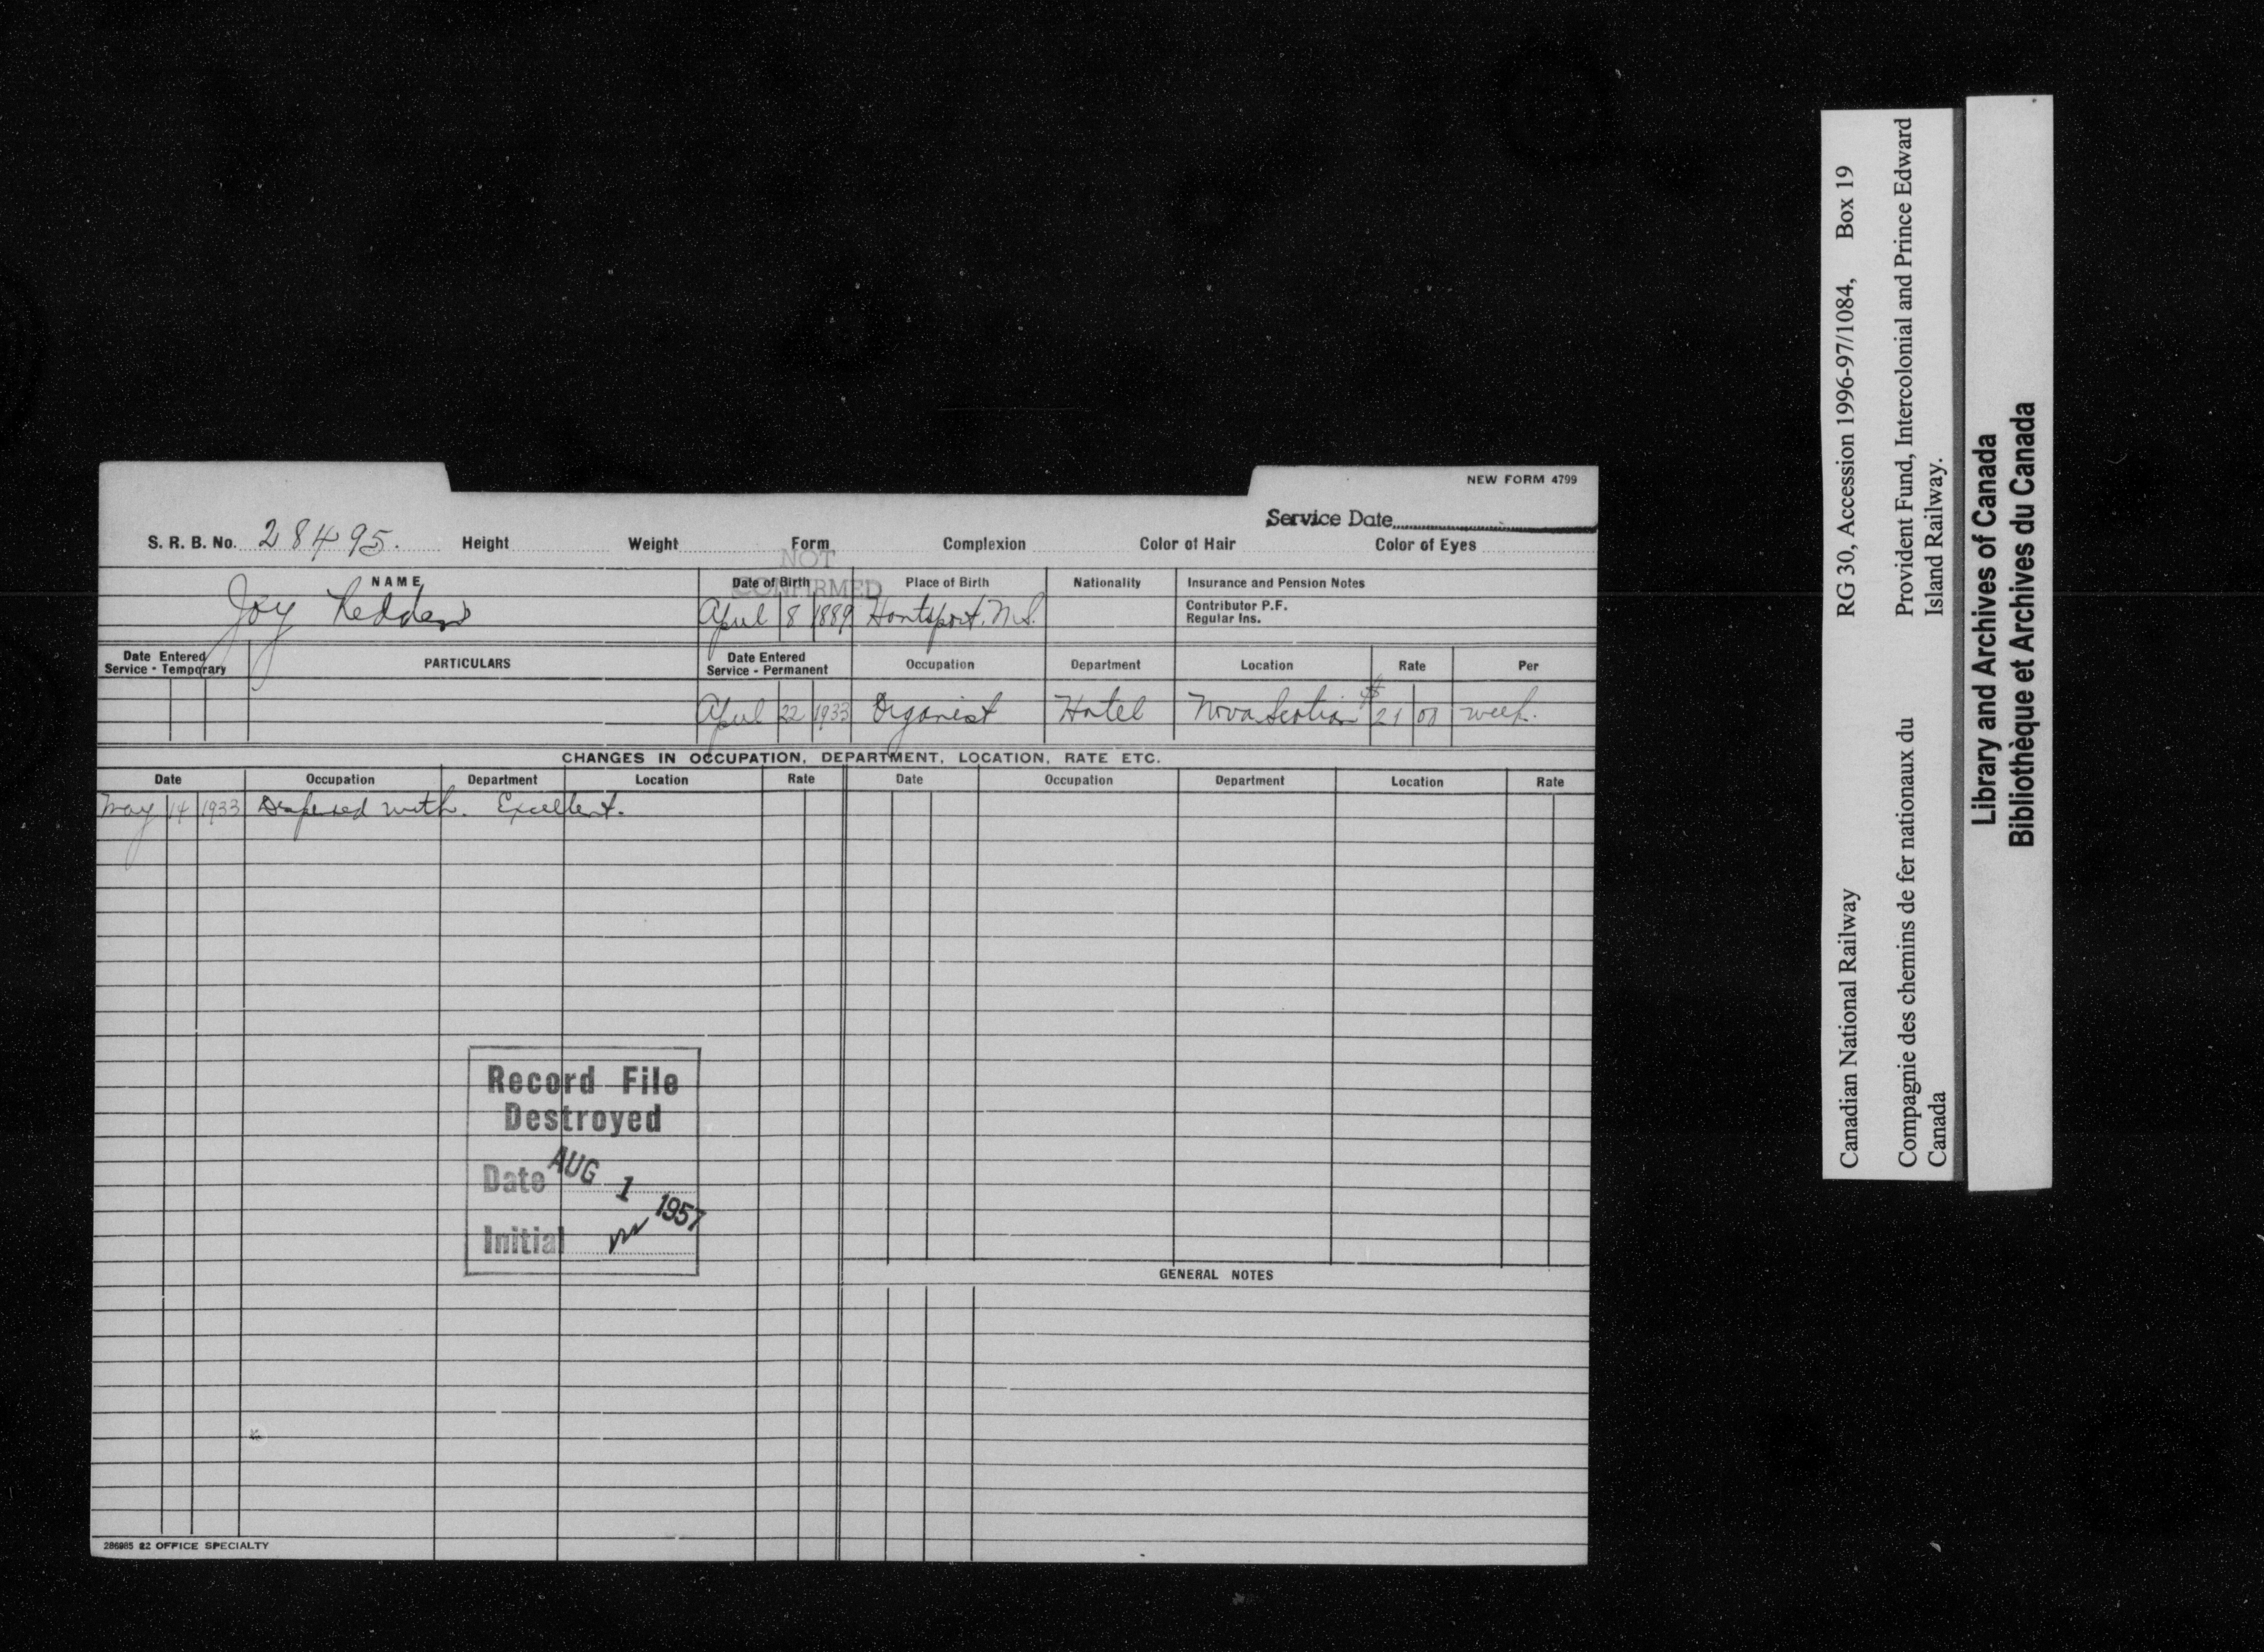 NEW FORM 4799
Service Date
S. R. B. No. 28495. Height Weight Form Complexion Color of Hair Color of Eyes
NOT CONFIRMED
NAME Date of Birth Place of Birth Nationality Insurance and Pension Notes
Contributor P.F.
Regular Ins.
Joy Redden April 8 1889 Hantsport, N.S.
Date Entered Service - Temporary PARTICULARS Date Entered Service - Permanent Occupation Department Location Rate Per
April 22 1933 Organist Hotel Nova Scotian $21 00 week.
CHANGES IN OCCUPATION, DEPARTMENT, LOCATION, RATE ETC.
Date Occupation Department Location Rate Date Occupation Department Location Rate
May 14 1933 Dispensed with. Excellent.
Record File
Destroyed
Date AUG 1 1957
Initial
GENERAL NOTES
286985 22 OFFICE SPECIALTY
Canadian National Railway RG 30, Accession 1996-97/1084, Box 19
Compagnie des chemins de fer nationaux du Provident Fund, Intercolonial and Prince Edward
Canada Island Railway.
Library and Archives of Canada
Bibliothèque et Archives du Canada